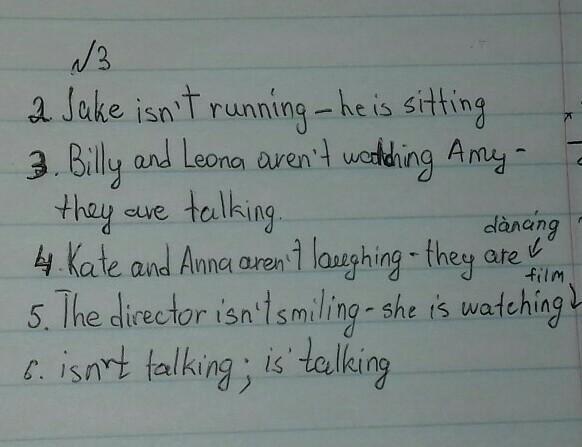 №3
2 Jake isn't running – he is sitting
3. Billy and Leona aren't watching Amy -
they are talking.
dancing
4. Kate and Anna aren't laughing - they are ↓
film
5. The director isn't smiling - she is watching ↓
6. isn't talking; is talking